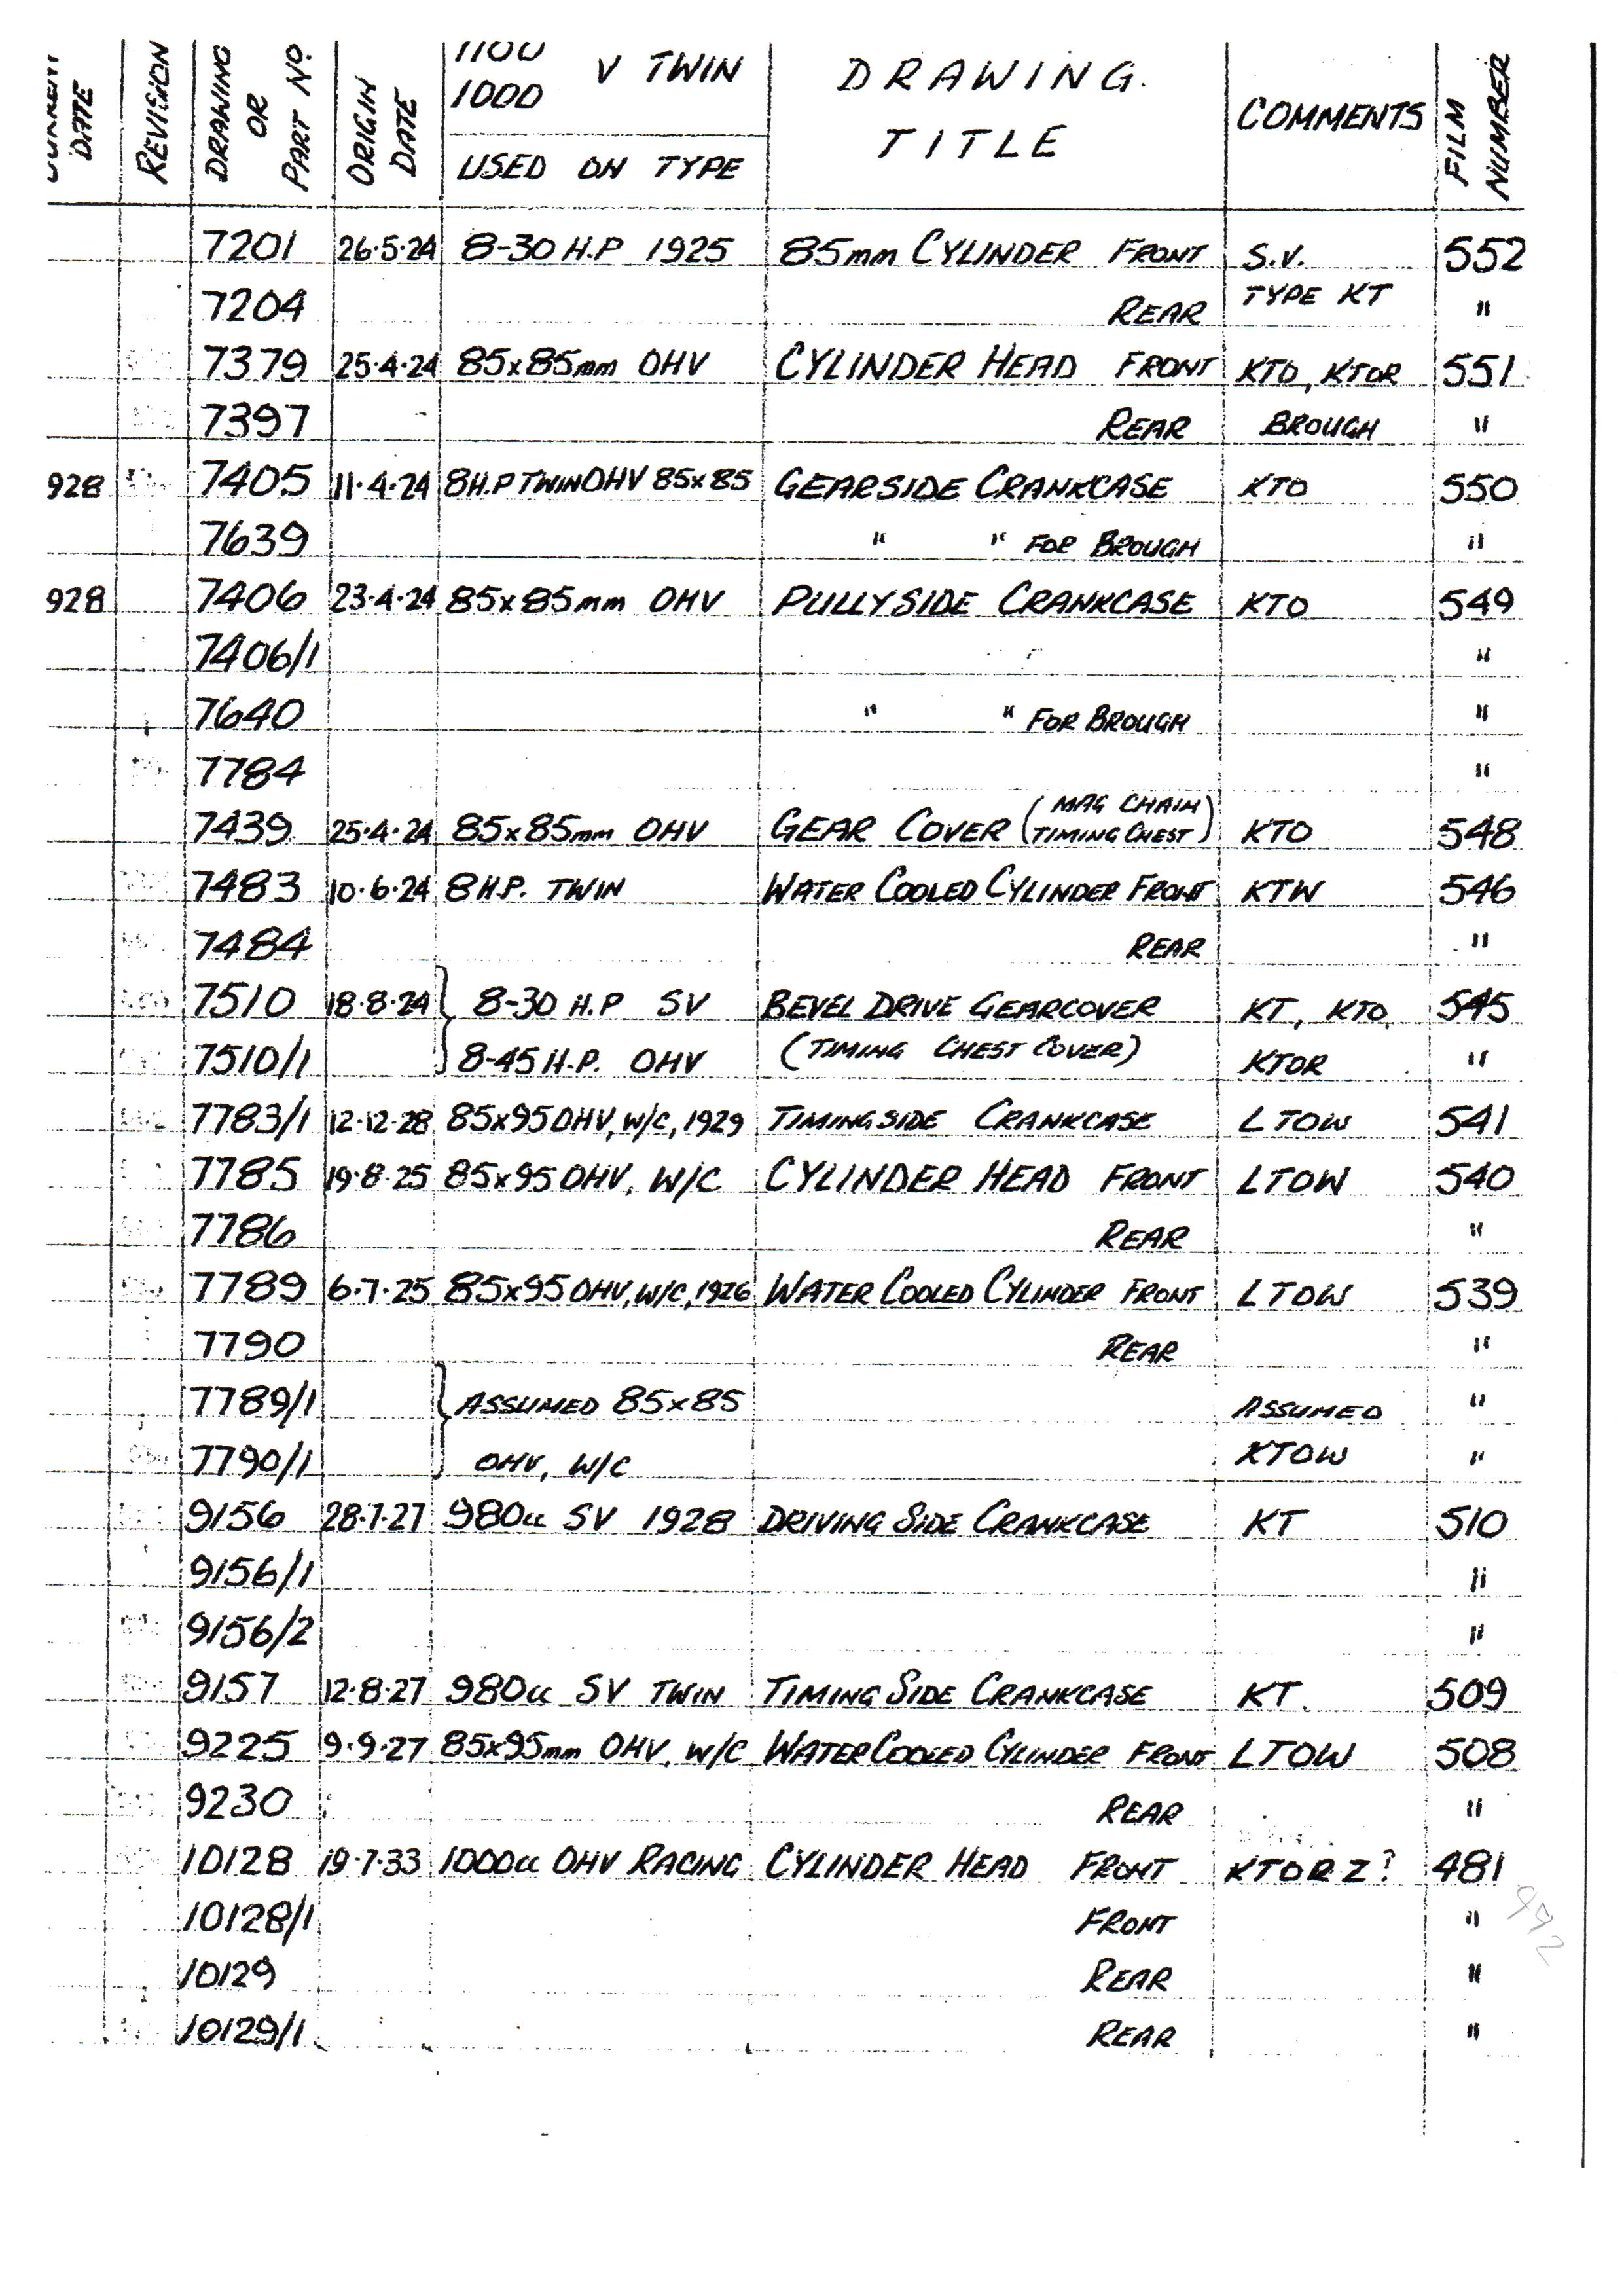 CURRENT DATE REVISION DRAWING OR PART No. ORIGIN DATE 1100 1000 V TWIN USED ON TYPE DRAWING. TITLE COMMENTS FILM NUMBER
7201 26.5.24 8-30 H.P 1925 85mm CYLINDER FRONT S.V. 552
7204 REAR TYPE KT "
7379 25.4.24 85x85mm OHV CYLINDER HEAD FRONT KTO, KTOR 551
7397 REAR BROUGH "
928 7405 11.4.24 8H.P TWIN OHV 85x85 GEARSIDE CRANKCASE KTO 550
7639 " " FOR BROUGH "
928 7406 23.4.24 85x85mm OHV PULLYSIDE CRANKCASE KTO 549
7406/1 "
7640 " " FOR BROUGH "
7784 "
7439 25.4.24 85x85mm OHV GEAR COVER (MAG CHAIN TIMING CHEST) KTO 548
7483 10.6.24 8H.P. TWIN WATER COOLED CYLINDER FRONT KTW 546
7484 REAR "
7510 18.8.24 } 8-30 H.P SV BEVEL DRIVE GEARCOVER KT, KTO, 545
7510/1 8-45 H.P. OHV (TIMING CHEST COVER) KTOR "
7783/1 12.12.28 85x95 OHV, W/C, 1929 TIMINGSIDE CRANKCASE LTOW 541
7785 19.8.25 85x95 OHV, W/C CYLINDER HEAD FRONT LTOW 540
7786 REAR "
7789 6.7.25 85x95 OHV, W/C, 1926 WATER COOLED CYLINDER FRONT LTOW 539
7790 REAR "
7789/1 } ASSUMED 85x85 ASSUMED "
7790/1 OHV, W/C KTOW "
9156 28.7.27 980cc SV 1928 DRIVING SIDE CRANKCASE KT 510
9156/1 "
9156/2 "
9157 12.8.27 980cc SV TWIN TIMING SIDE CRANKCASE KT. 509
9225 9.9.27 85x95mm OHV, W/C WATER COOLED CYLINDER FRONT LTOW 508
9230 REAR "
10128 19.7.33 1000cc OHV RACING CYLINDER HEAD FRONT KTORZ? 481
10128/1 FRONT "
10129 REAR "
10129/1 REAR "